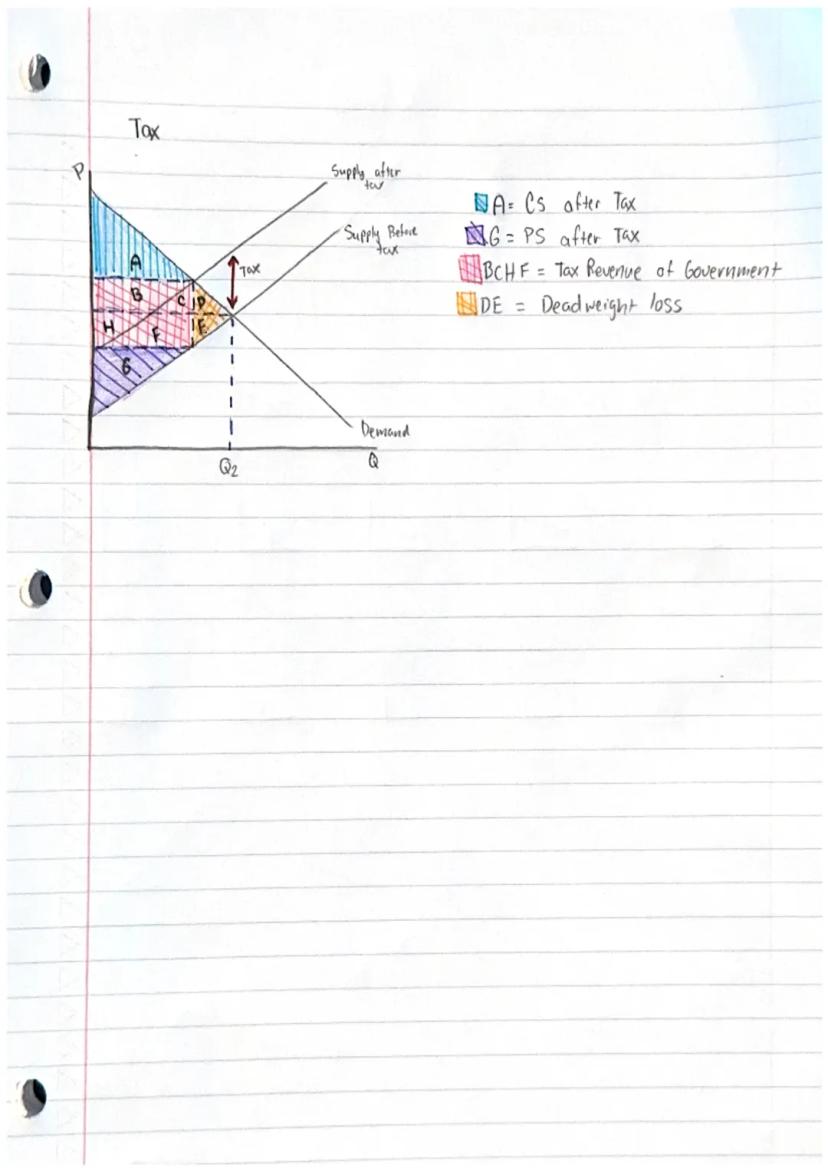 Tax
P
Supply after
tax
Supply Before
tax
Tax
A
B
C D
H
F
E
G
Demand
Q2
Q
A = CS after Tax
G = PS after Tax
BCHF = Tax Revenue of Government
DE = Deadweight loss